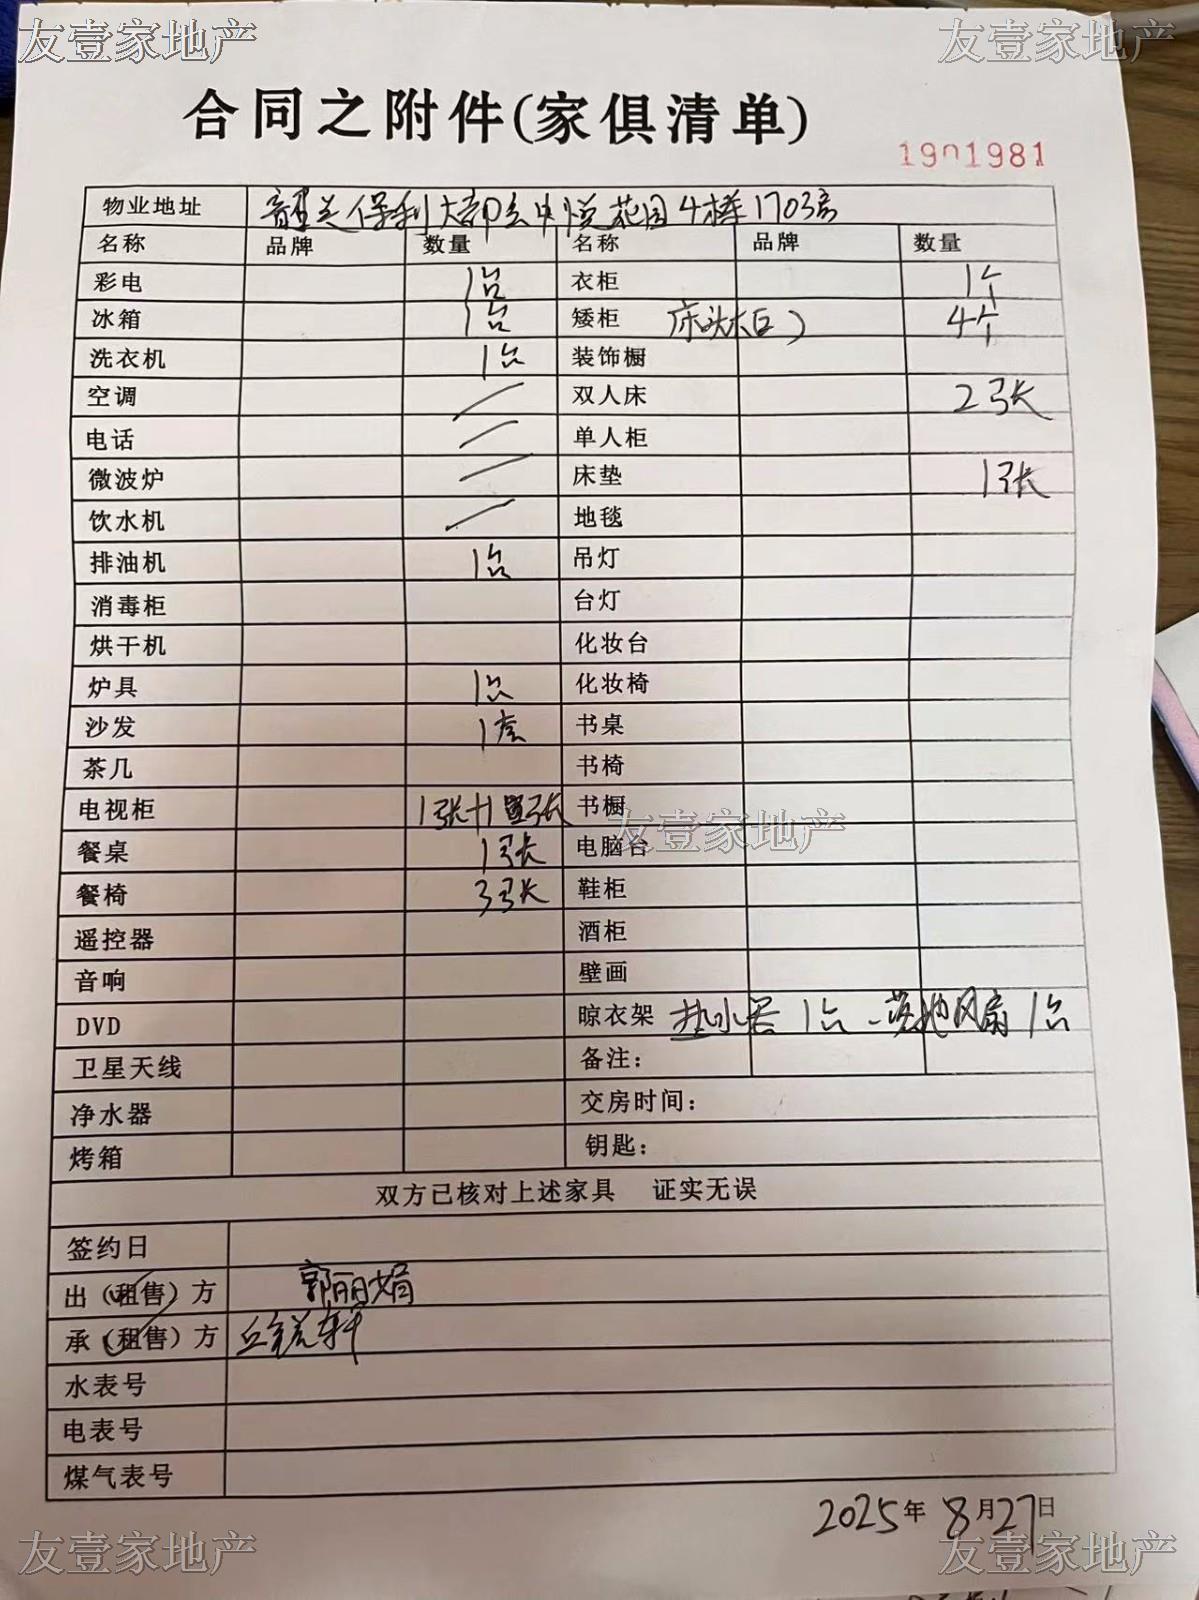 友壹家地产 友壹家地产
合同之附件(家俱清单)
1901981
物业地址 保利大都会中悦花园4栋1703房
名称 品牌 数量 名称 品牌 数量
彩电 1台 衣柜 1个
冰箱 1台 矮柜 床头柜) 4个
洗衣机 1台 装饰橱
空调 双人床 2张
电话 单人柜
微波炉 床垫 1张
饮水机 地毯
排油机 1台 吊灯
消毒柜 台灯
烘干机 化妆台
炉具 1台 化妆椅
沙发 1套 书桌
茶几 书椅
电视柜 1张+1 张 书橱
友壹家地产
餐桌 1张 电脑台
餐椅 3张 鞋柜
遥控器 酒柜
音响 壁画
DVD 晾衣架 热水器 1台 落地风扇 1台
卫星天线 备注：
净水器 交房时间：
烤箱 钥匙：
双方已核对上述家具 证实无误
签约日
出（租售）方 郭丽娟
承（租售）方
水表号
电表号
煤气表号
2025年 8月27日
友壹家地产 友壹家地产